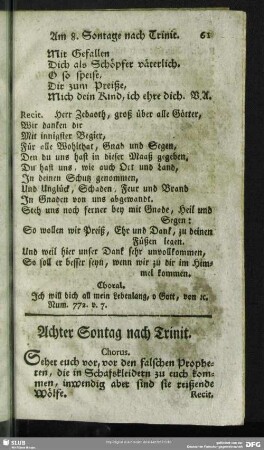 Am 8. Sontage nach Trinit. 61
Mit Gefallen
Dich als Schöpfer väterlich.
O so speise,
Dir zum Preiße,
Mich dein Kind, ich ehre dich. V.A.
Recit. Herr Zebaoth, groß über alle Götter,
Wir danken dir
Mit innigster Begier,
Für alle Wohlthat, Gnad und Segen,
Den du uns hast in dieser Maaß gegeben,
Du hast uns, wie auch Ort und Land,
In deinen Schutz genommen,
Und Unglück, Schaden, Feur und Brand
In Gnaden von uns abgewandt.
Steh uns noch ferner bey mit Gnade, Heil und
Segen:
So wollen wir Preiß, Ehr und Dank, zu deinen
Füßen legen.
Und weil hier unser Dank sehr unvollkommen,
So soll er besser seyn, wenn wir zu dir im Him-
mel kommen.
Choral.
Ich will dich all mein Lebenlang, o Gott, von ꝛc.
Num. 772. v. 7.
Achter Sontag nach Trinit.
Chorus.
Sehet euch vor, vor den falschen Prophe-
ten, die in Schafskleidern zu euch kom-
men, inwendig aber sind sie reißende
Wölfe. Recit.
SLUB
DFG